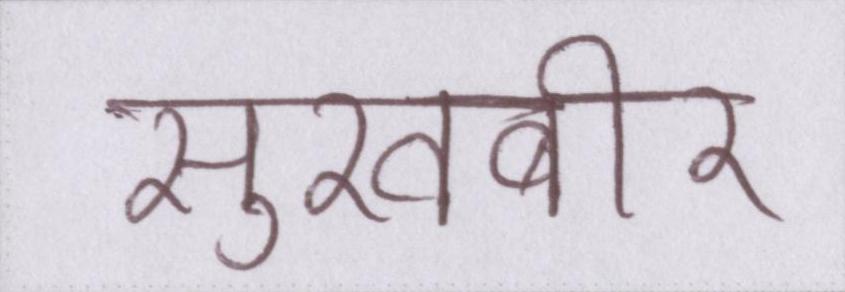 सुखबीर